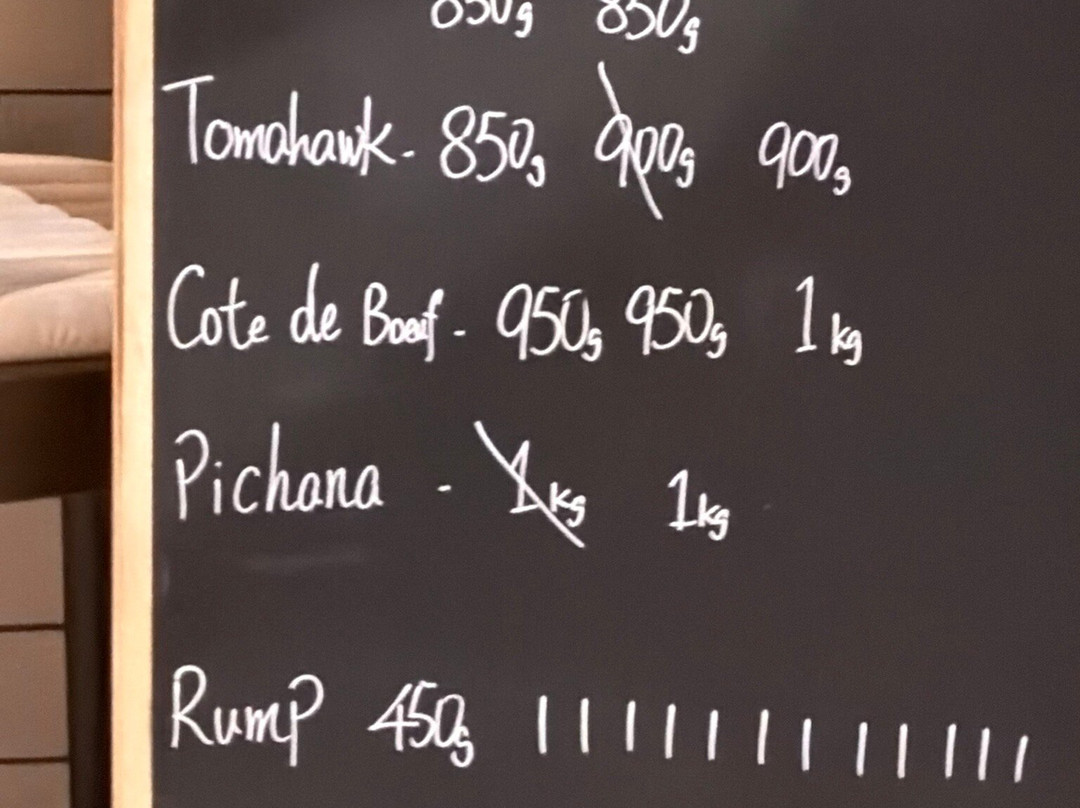 850g 850g
Tomahawk - 850g 900g 900g
Cote de Boeuf - 950g 950g 1kg
Pichana - 1kg 1kg
Rump 450g | | | | | | | | | | | |